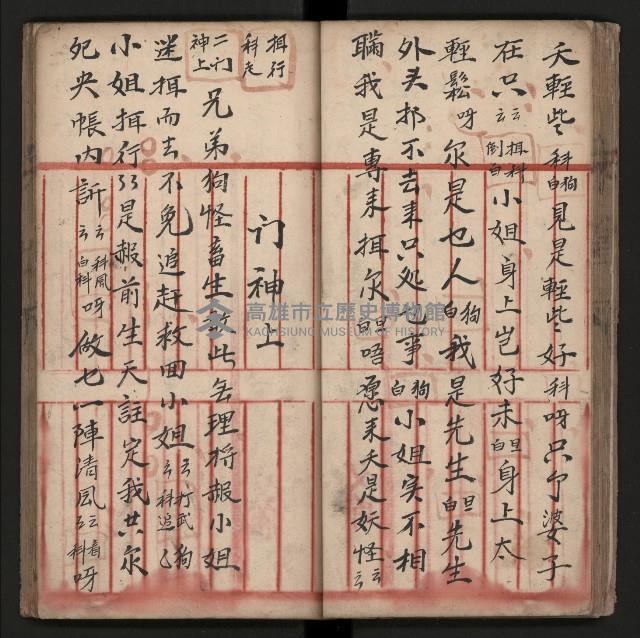 夭輕些科狗白見是輕些好科呀只个婆子
在只云云揖科倒白小姐身上岂好未旦白身上太
輕鬆呀尔是乜人狗白我是先生旦白先生
外头邦不去来只处乜事狗白小姐实不相
瞞我是專来揖尔旦白唔愿来夭是妖怪云云
揖行科走
二门神上
门神上
兄弟狗怪畜生敢此無理将赧小姐
迷揖而去不免追赶救回小姐云云打武狗科追
小姐揖行是赧前生天註定我共尔
死央帳内訴云云科風白科呀做乜一陣清風云云看科呀
高雄市立歷史博物館
KAOHSIUNG MUSEUM OF HISTORY